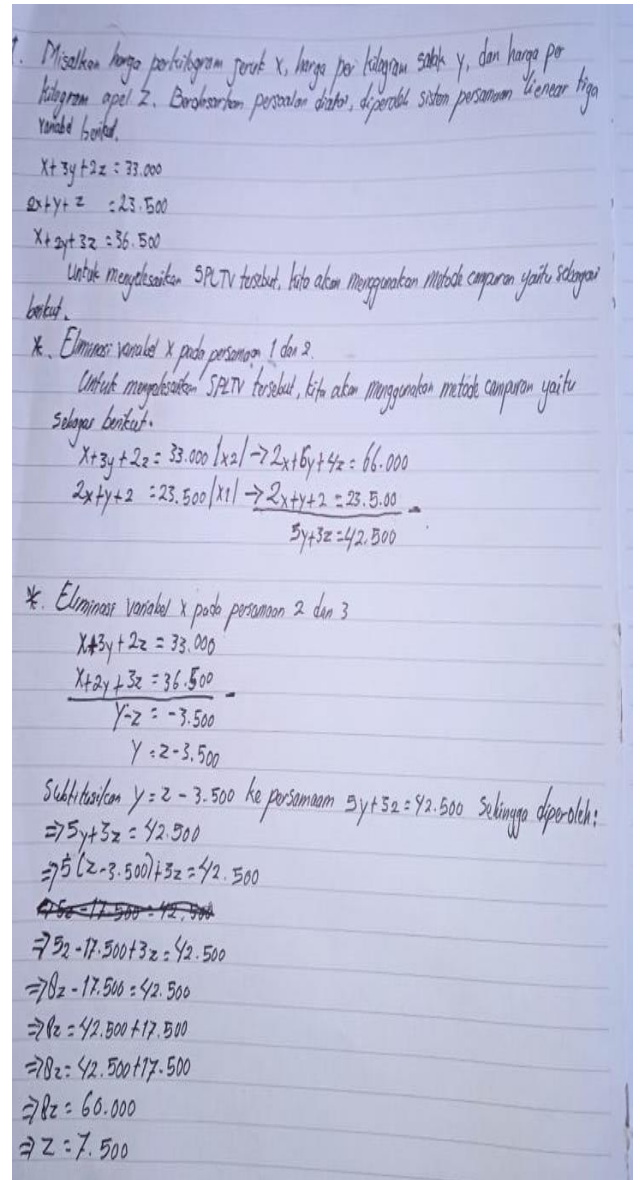 1. Misalkan harga perkilogram jeruk x, harga per kilogram salak y, dan harga per
kilogram apel z. Berdasarkan persoalan diatas, diperoleh sistem persamaan lienear tiga
variabel berikut.
x+3y+2z = 33.000
2x+y+z = 23.500
x+2y+3z = 36.500
Untuk menyelesaikan SPLTV tersebut, kita akan menggunakan metode campuran yaitu sebagai
berikut.
*. Eliminasi variabel x pada persamaan 1 dan 2.
Untuk menyelesaikan SPLTV tersebut, kita akan menggunakan metode campuran yaitu
sebagai berikut.
x+3y+2z = 33.000 |x2| → 2x+6y+4z = 66.000
2x+y+z = 23.500 |x1| → 2x+y+z = 23.5.00 -
5y+3z = 42.500
*. Eliminasi variabel x pada persamaan 2 dan 3
x+3y+2z = 33.000
x+2y+3z = 36.500 -
y-z = -3.500
y = z-3.500
Subtitusikan y = z - 3.500 ke persamaam 5y+3z = 42.500 Sehingga diperoleh:
⇒ 5y+3z = 42.500
⇒ 5(z-3.500)+3z = 42.500
⇒ 5z-17.500+3z = 42.500
⇒ 8z-17.500 = 42.500
⇒ 8z = 42.500+17.500
⇒ 8z = 42.500+17.500
⇒ 8z = 60.000
⇒ z = 7.500